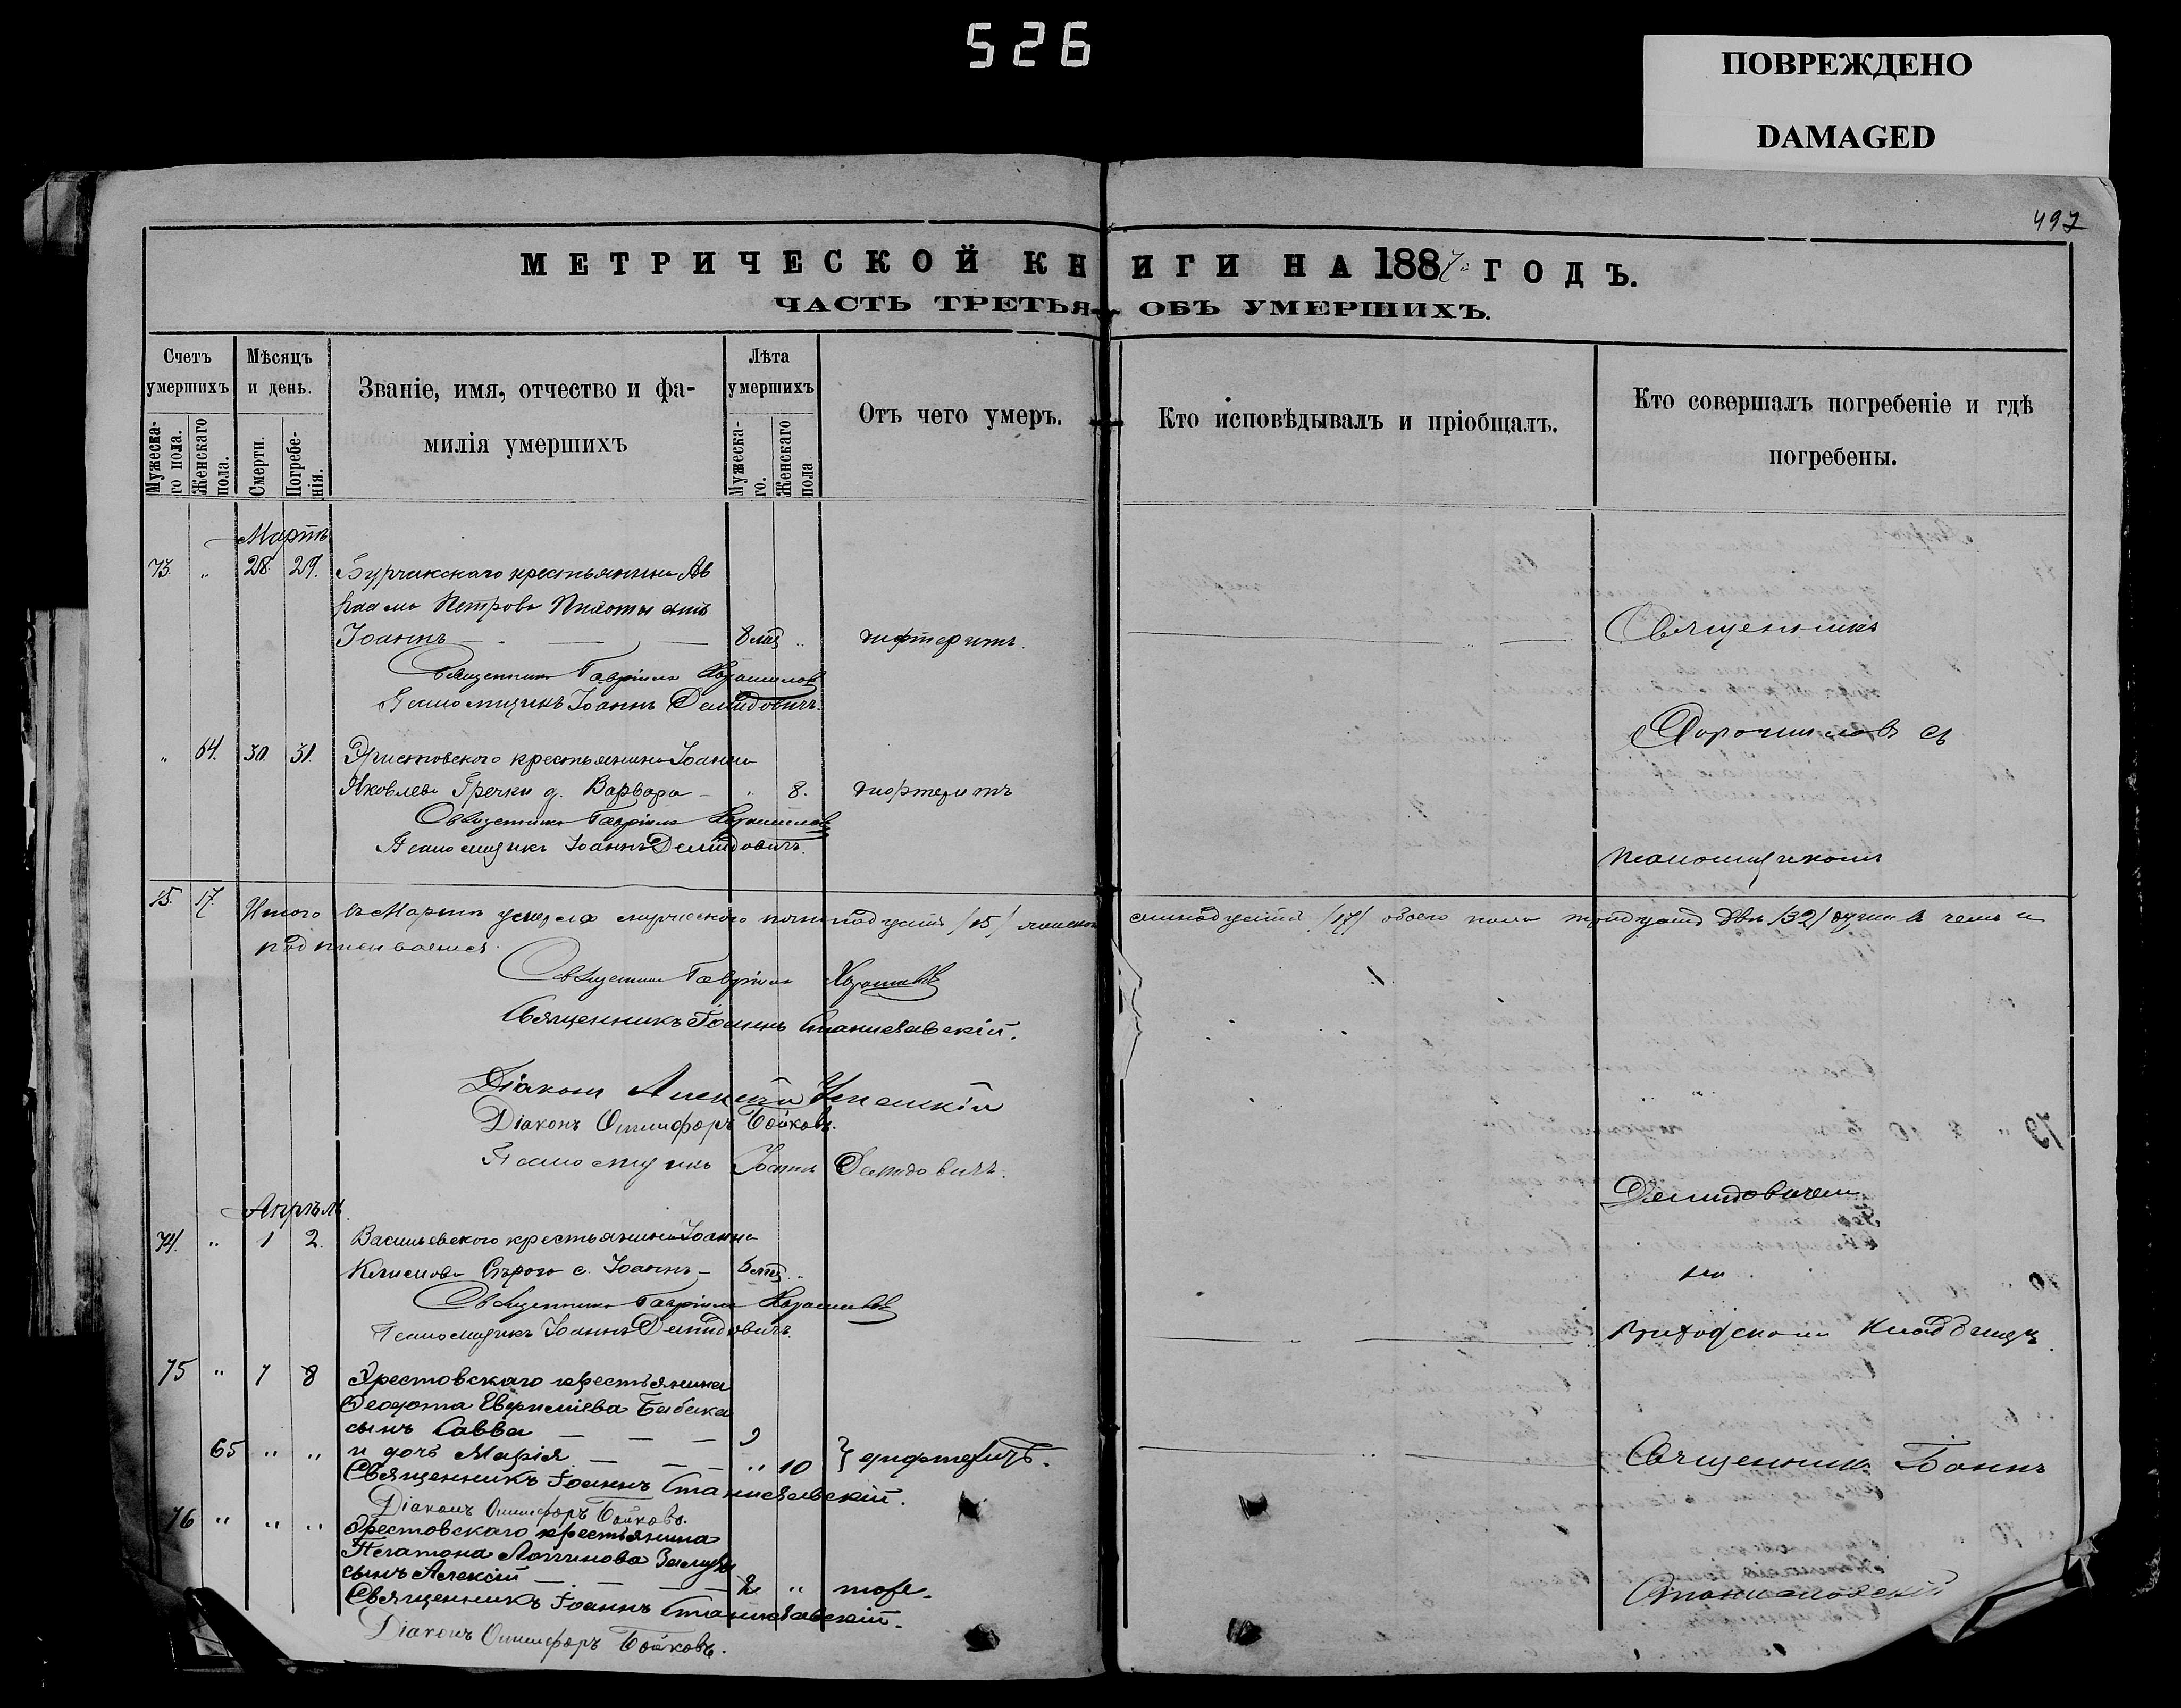 526
ПОВРЕЖДЕНО
DAMAGED
497
МЕТРИЧЕСКОЙ КНИГИ НА 1887 ГОДЪ.
ЧАСТЬ ТРЕТЬЯ ОБЪ УМЕРШИХЪ.
Счетъ умершихъ
Мужеска-го пола.
Женскаго пола.
Мѣсяцъ и день.
Смерти.
Погребе-нія.
Званіе, имя, отчество и фа-
милія умершихъ
Лѣта умершихъ
Мужеска-го.
Женскаго пола
Отъ чего умеръ.
Кто исповѣдывалъ и пріобщалъ.
Кто совершалъ погребеніе и гдѣ
погребены.
Мартъ
73. " 28 29. Бурчакскаго крестьянина Ав
раама Петрова сынъ
Іоаннъ 8 мц " дифтеритъ. Священникъ
Священникъ Гавріилъ
Псаломщикъ Іоаннъ Демидовичъ.
" 64. 30. 31. Христовского крестьянина Іоанна
Яковлева Гречки д. Варвара " 8. дифтеритъ
Священникъ Гавріилъ
Псаломщикъ Іоаннъ Демидовичъ.
псаломщикомъ
15. 17. Итого въ Мартѣ умерло мужескаго пятнадцать /15/ женскаго семнадцать /17/ обоего пола тридцать два /32/ души въ чемъ и
подписываемся
Священникъ Гавріилъ
Священникъ Іоаннъ Станиславскій.
Діаконъ Алексѣй
Діаконъ Онисифоръ Бойковъ.
Псаломщикъ Іоаннъ Демидовичъ.
Демидовичемъ
Апрѣль
74. " 1 2. Васильевского крестьянина Іоанна
Климова Сѣрого с. Іоаннъ 5 мц " на
Священникъ Гавріилъ
Псаломщикъ Іоаннъ Демидовичъ.
приходскомъ кладбищѣ.
75 " 7 8 Христовскаго крестьянина
Ѳеодота Евѳиміева Бабака
сынъ Савва 9
65 " " и дочь Марія " 10 } дифтеритъ. Священникъ Іоаннъ
Священникъ Іоаннъ Станиславскій.
Діаконъ Онисифоръ Бойковъ.
76 " " " Христовскаго крестьянина
Платона Логгинова
сынъ Алексій 2 " тоже.
Станиславскій
Священникъ Іоаннъ Станиславскій.
Діаконъ Онисифоръ Бойковъ.